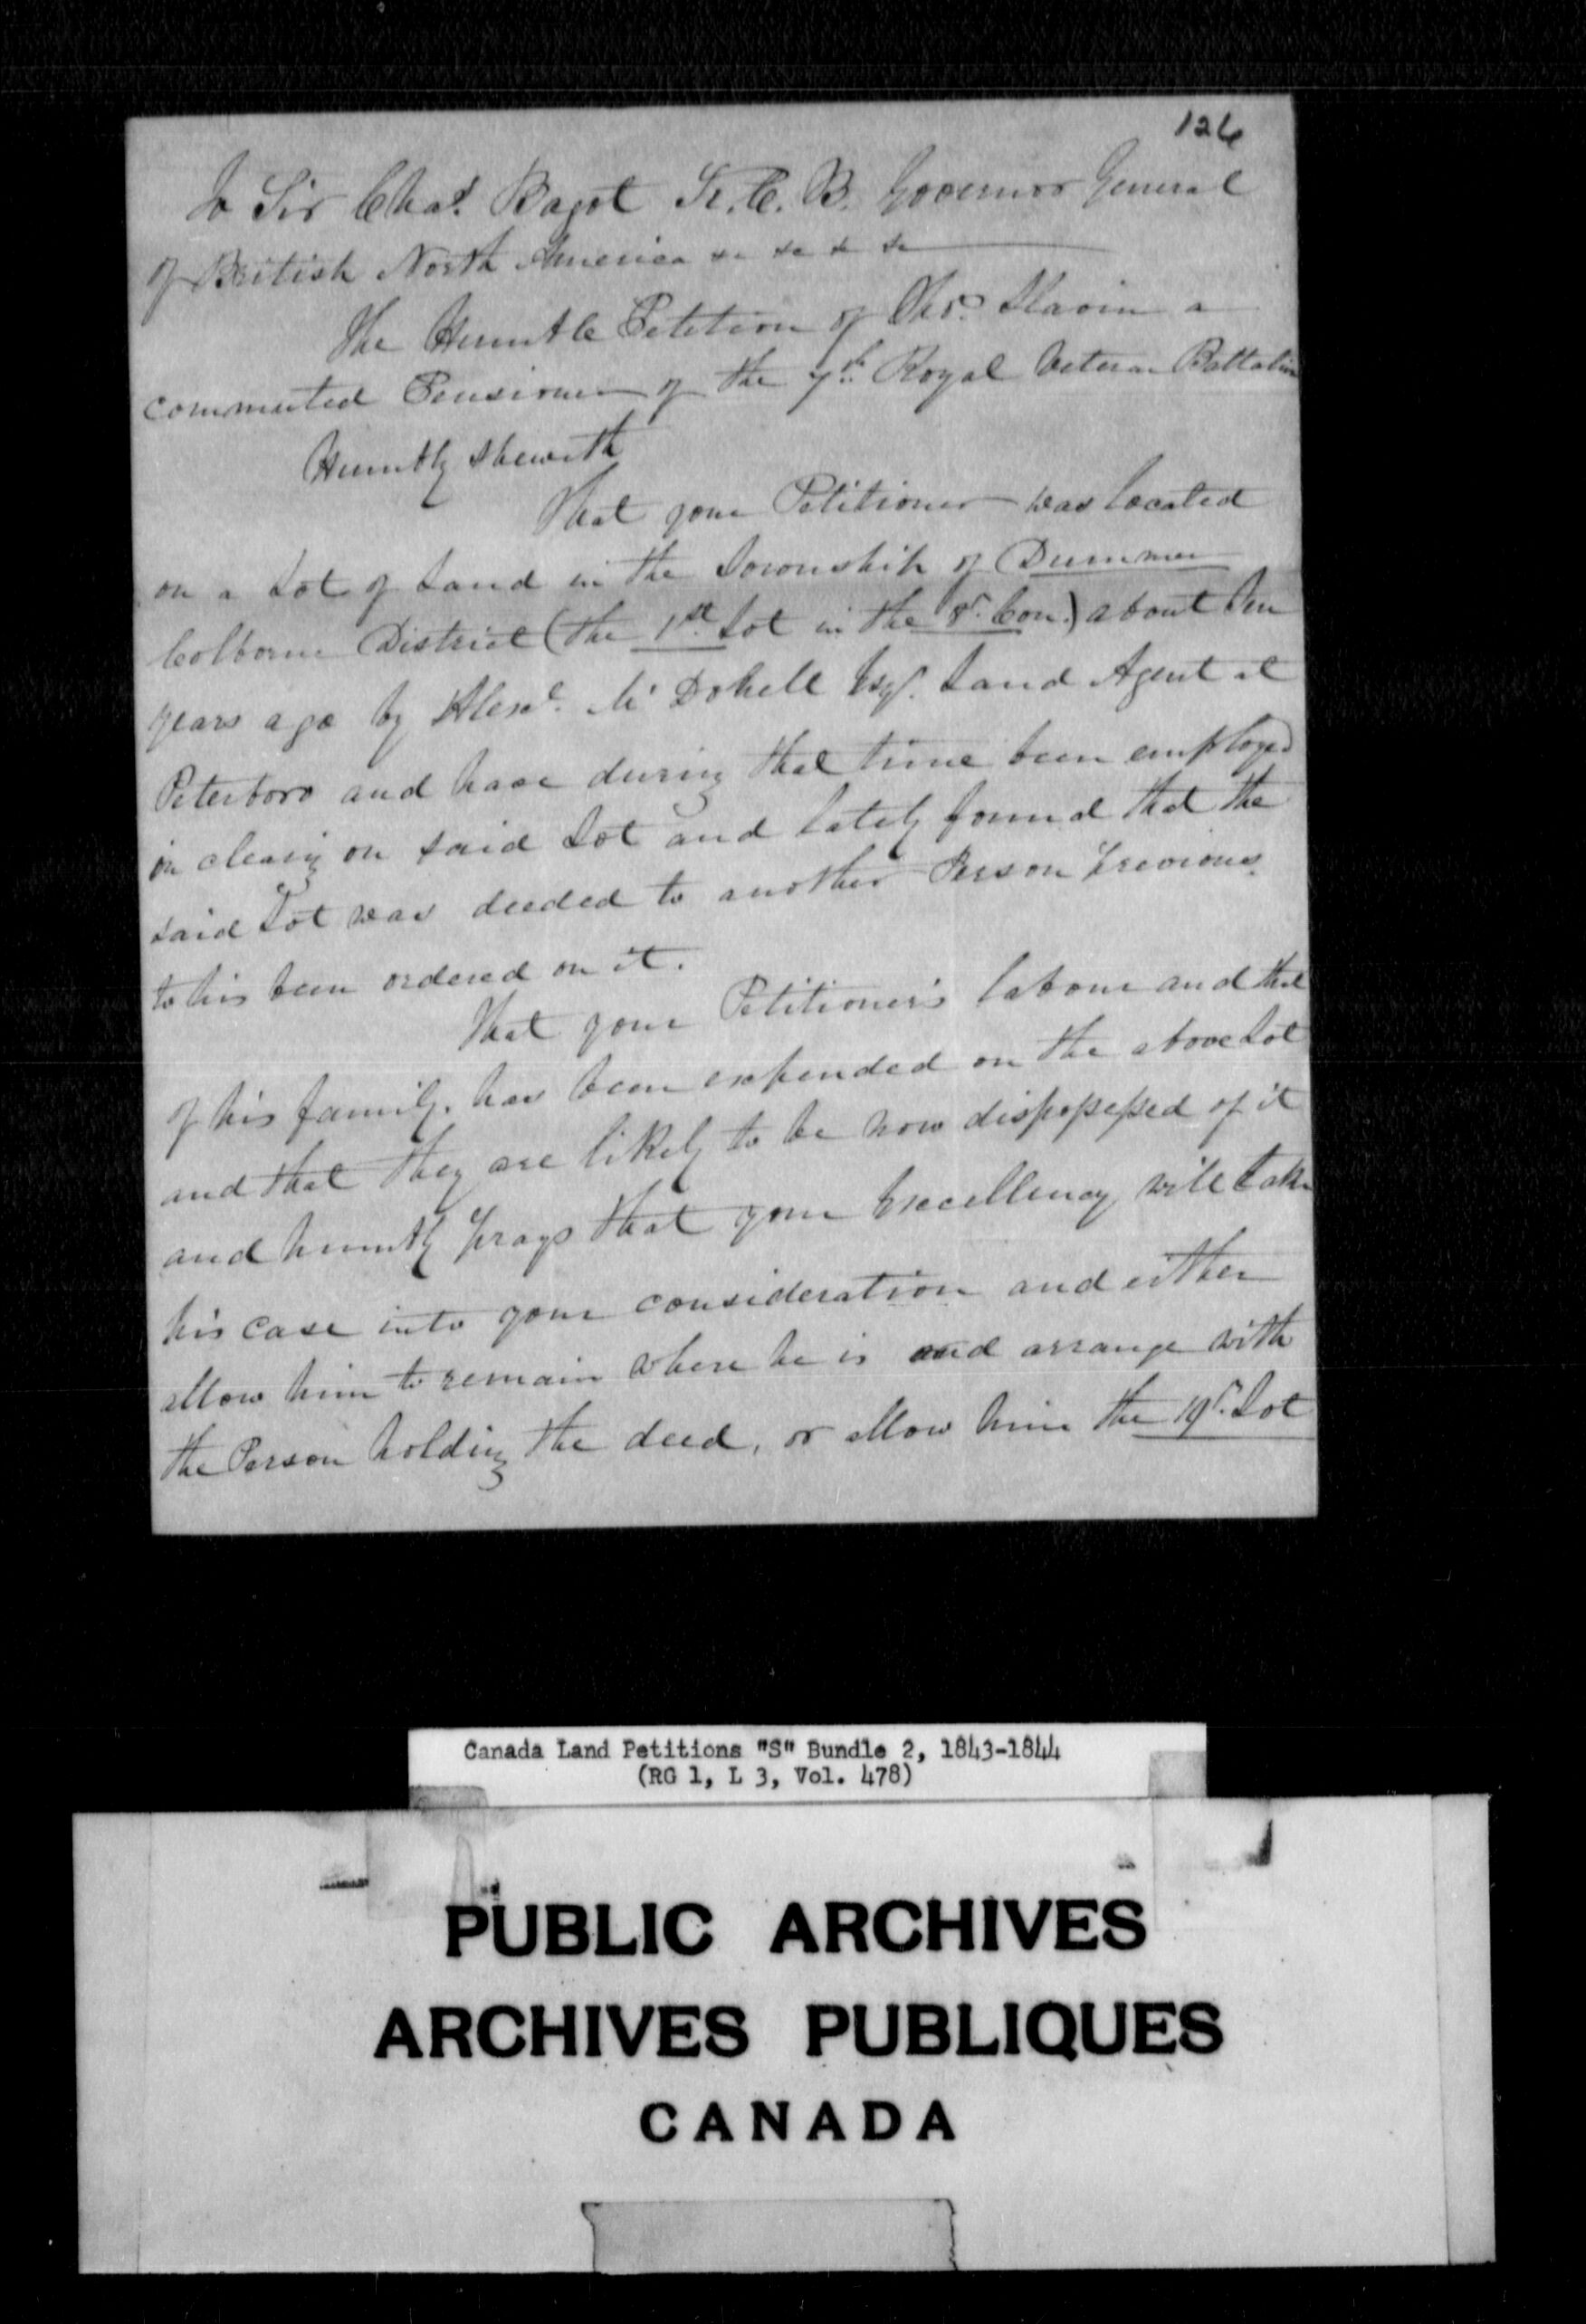 126
To Sir Chas. Bagot K.C.B. Governor General
of British North America &c &c &c &c
The Humble Petition of Thos. Slavin a
commuted Pensioner of the 7th Royal Veteran Battalion
Humbly Sheweth
That your Petitioner was located
on a Lot of Land in the Township of Dummer
Colborne District (the 1st Lot in the 8th Con.) about ten
years ago by Alexr. Mc Donell Esqr. Land Agent at
Peterboro and have during that time been employed
in clearing on said Lot and lately found that the
said Lot was deeded to another Person previous
to his been ordered on it.
That your Petitioner's labour and that
of his family has been expended on the above Lot
and that they are likely to be now dispossessed of it
and humbly prays that your Excellency will take
his case into your consideration and either
allow him to remain where he is and arrange with
the Person holding the deed, or allow him the 19th Lot
Canada Land Petitions "S" Bundle 2, 1843-1844
(RG 1, L 3, Vol. 478)
PUBLIC ARCHIVES
ARCHIVES PUBLIQUES
CANADA